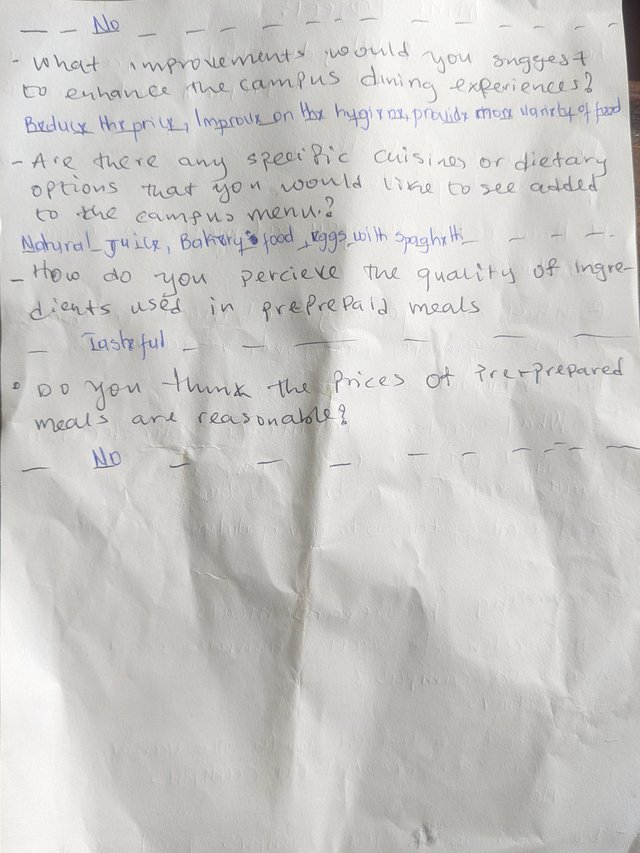 No
- What improvements would you suggest
to enhance the campus dining experiences?
Reduce the price, Improve on the hygiene, provide more variety of food
- Are there any specific cuisines or dietary
options that you would like to see added
to the campus menu.?
Natural Juice, Bakery's food, eggs with spaghetti
- How do you percieve the quality of ingre-
dients used in preprepaid meals
Tasteful
• Do you think the prices of Pre-prepared
meals are reasonable?
No